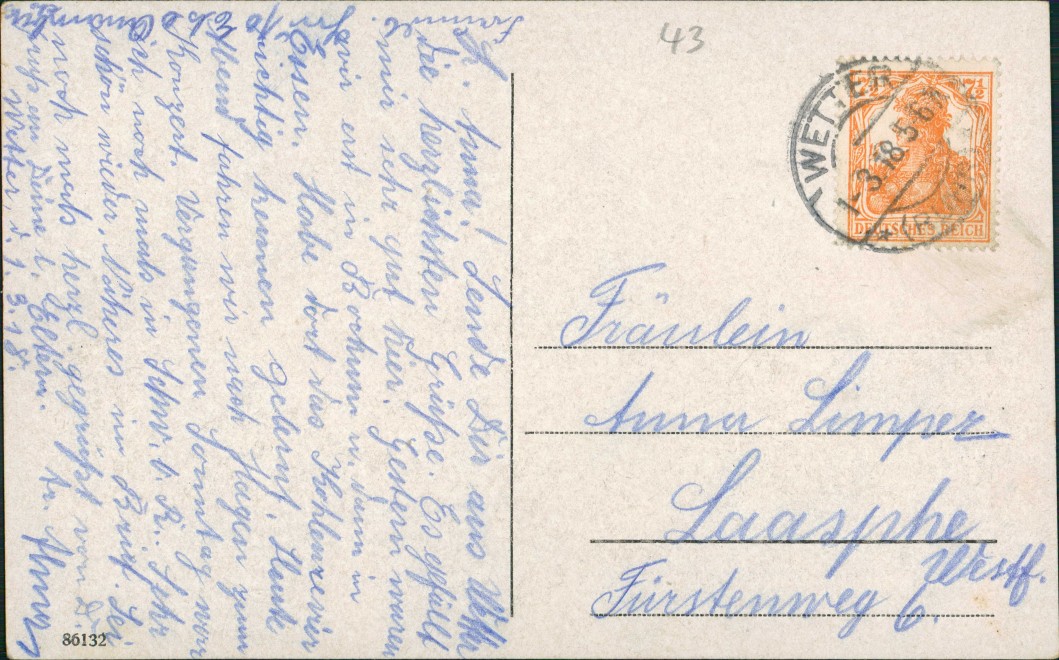 43
WETTER
1.3.18.5-6
7½ 7½
DEUTSCHES REICH
Fräulein
Anna Limper
Laasphe
Westf.
Fürstenweg 6.
L. Anna! Sende Dir aus
die herzlichsten Grüße. Es gefällt
mir sehr gut hier. Gestern waren
wir erst in Bochum u. dann in
Essen. Habe dort das Kohlenrevier
richtig kennen gelernt. Heute
Abend fahren wir nach Hagen zum
Konzert. Vergangenen Sonntag war
ich noch mals in Schw. b. R. Sehr
schön wieder. Näheres im Brief. Sei
noch mals herzl. gegrüßt von D.
Gruß an Deine l. Eltern.
Wetter, d. 1.3.18.
86132